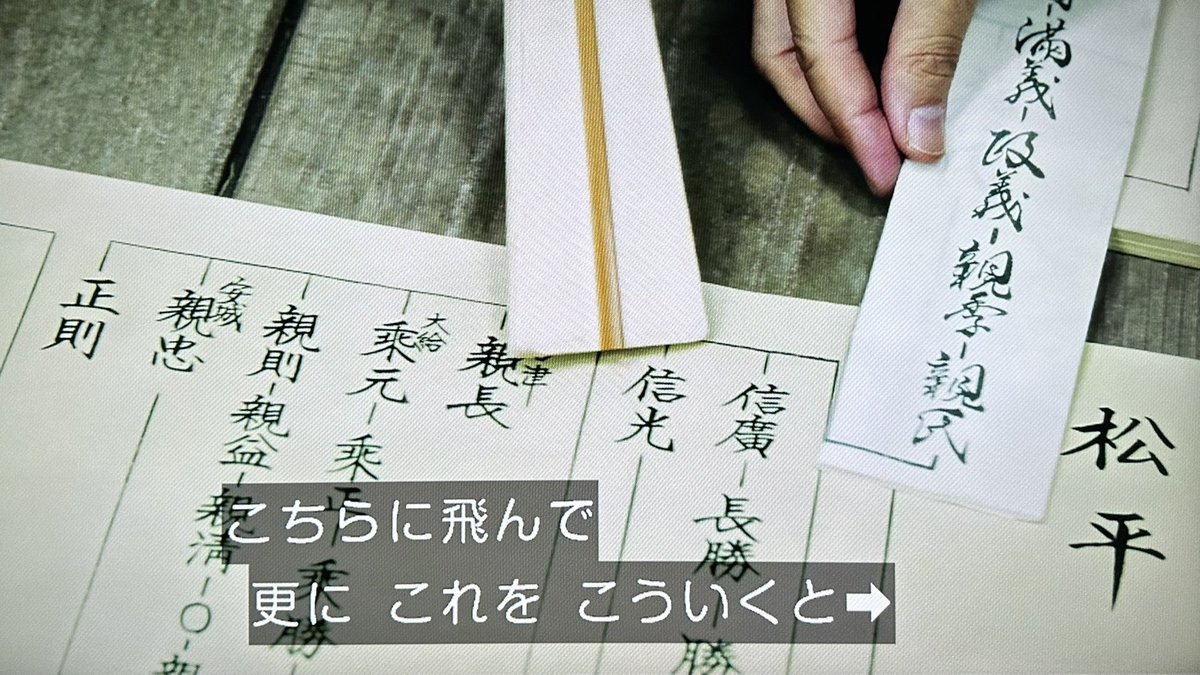 満義-政義-親季-親民
松平
信廣-長勝-勝
信光
津
親長
大給
乗元-乗正-乗勝
親則-親益-親清-○-親
安城
親忠
正則
こちらに飛んで
更に これを こういくと➡